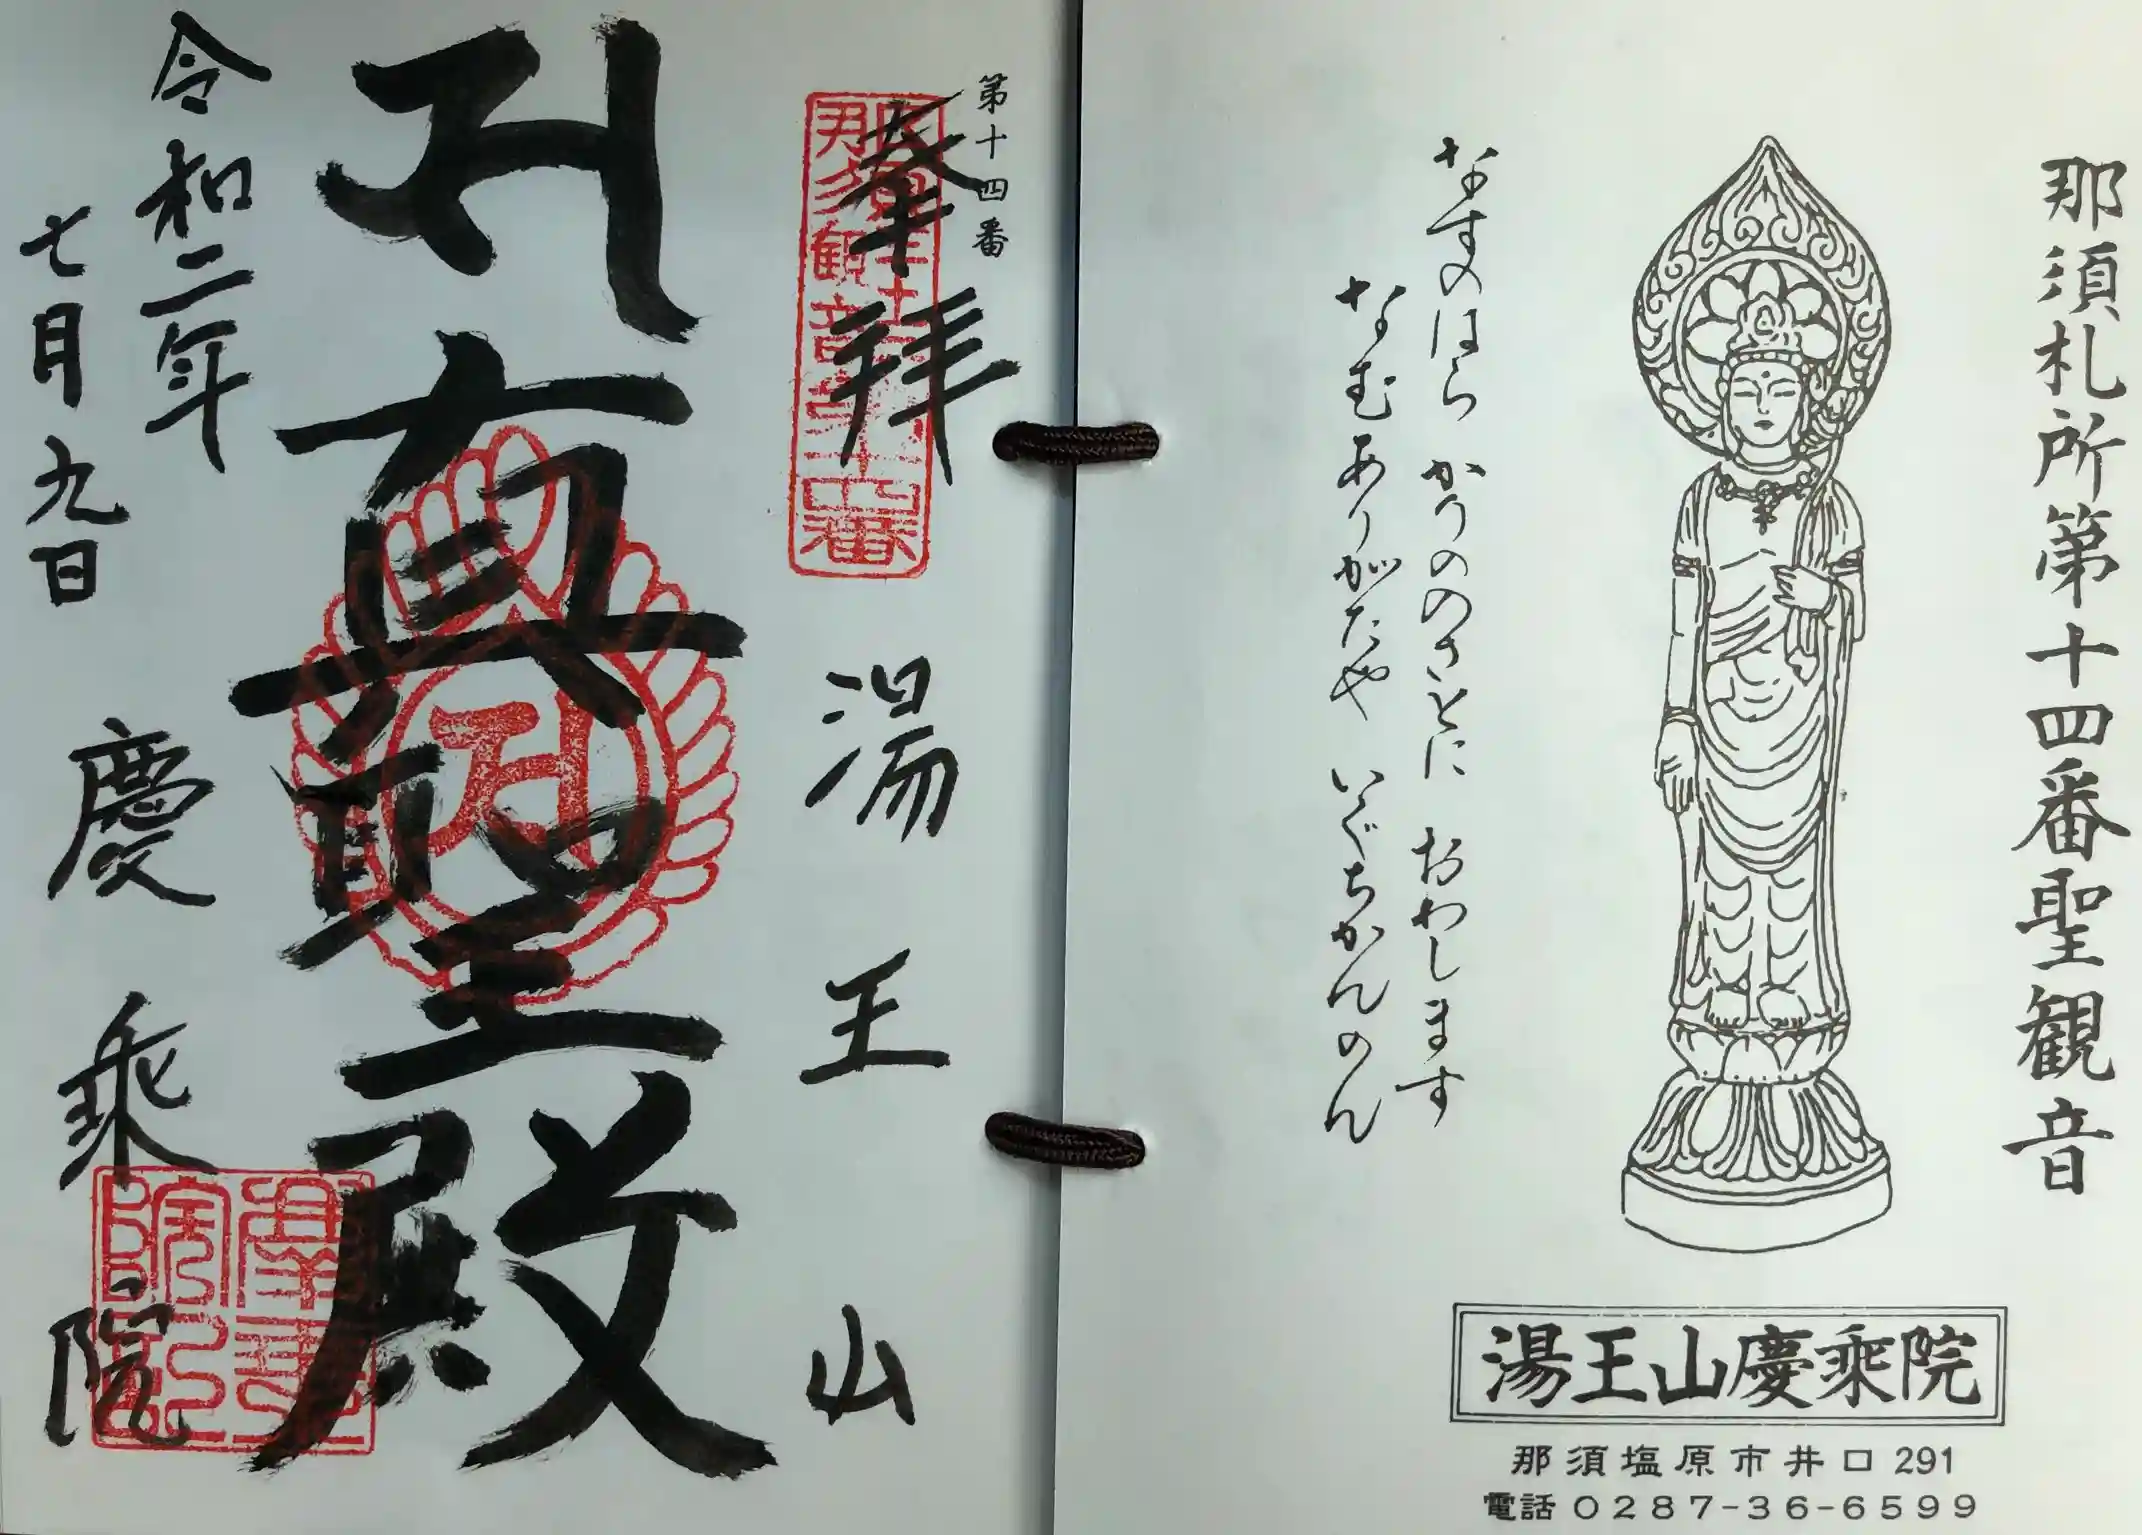 那須札所第十四番聖観音
なすのはら かりののさとに おわします
なむありがたや いぐちかんのん
湯王山慶乗院
那須塩原市井口 291
電話 0287-36-6599
第十四番
奉拝
湯王山
大聖殿
令和二年
七月九日
慶乗院